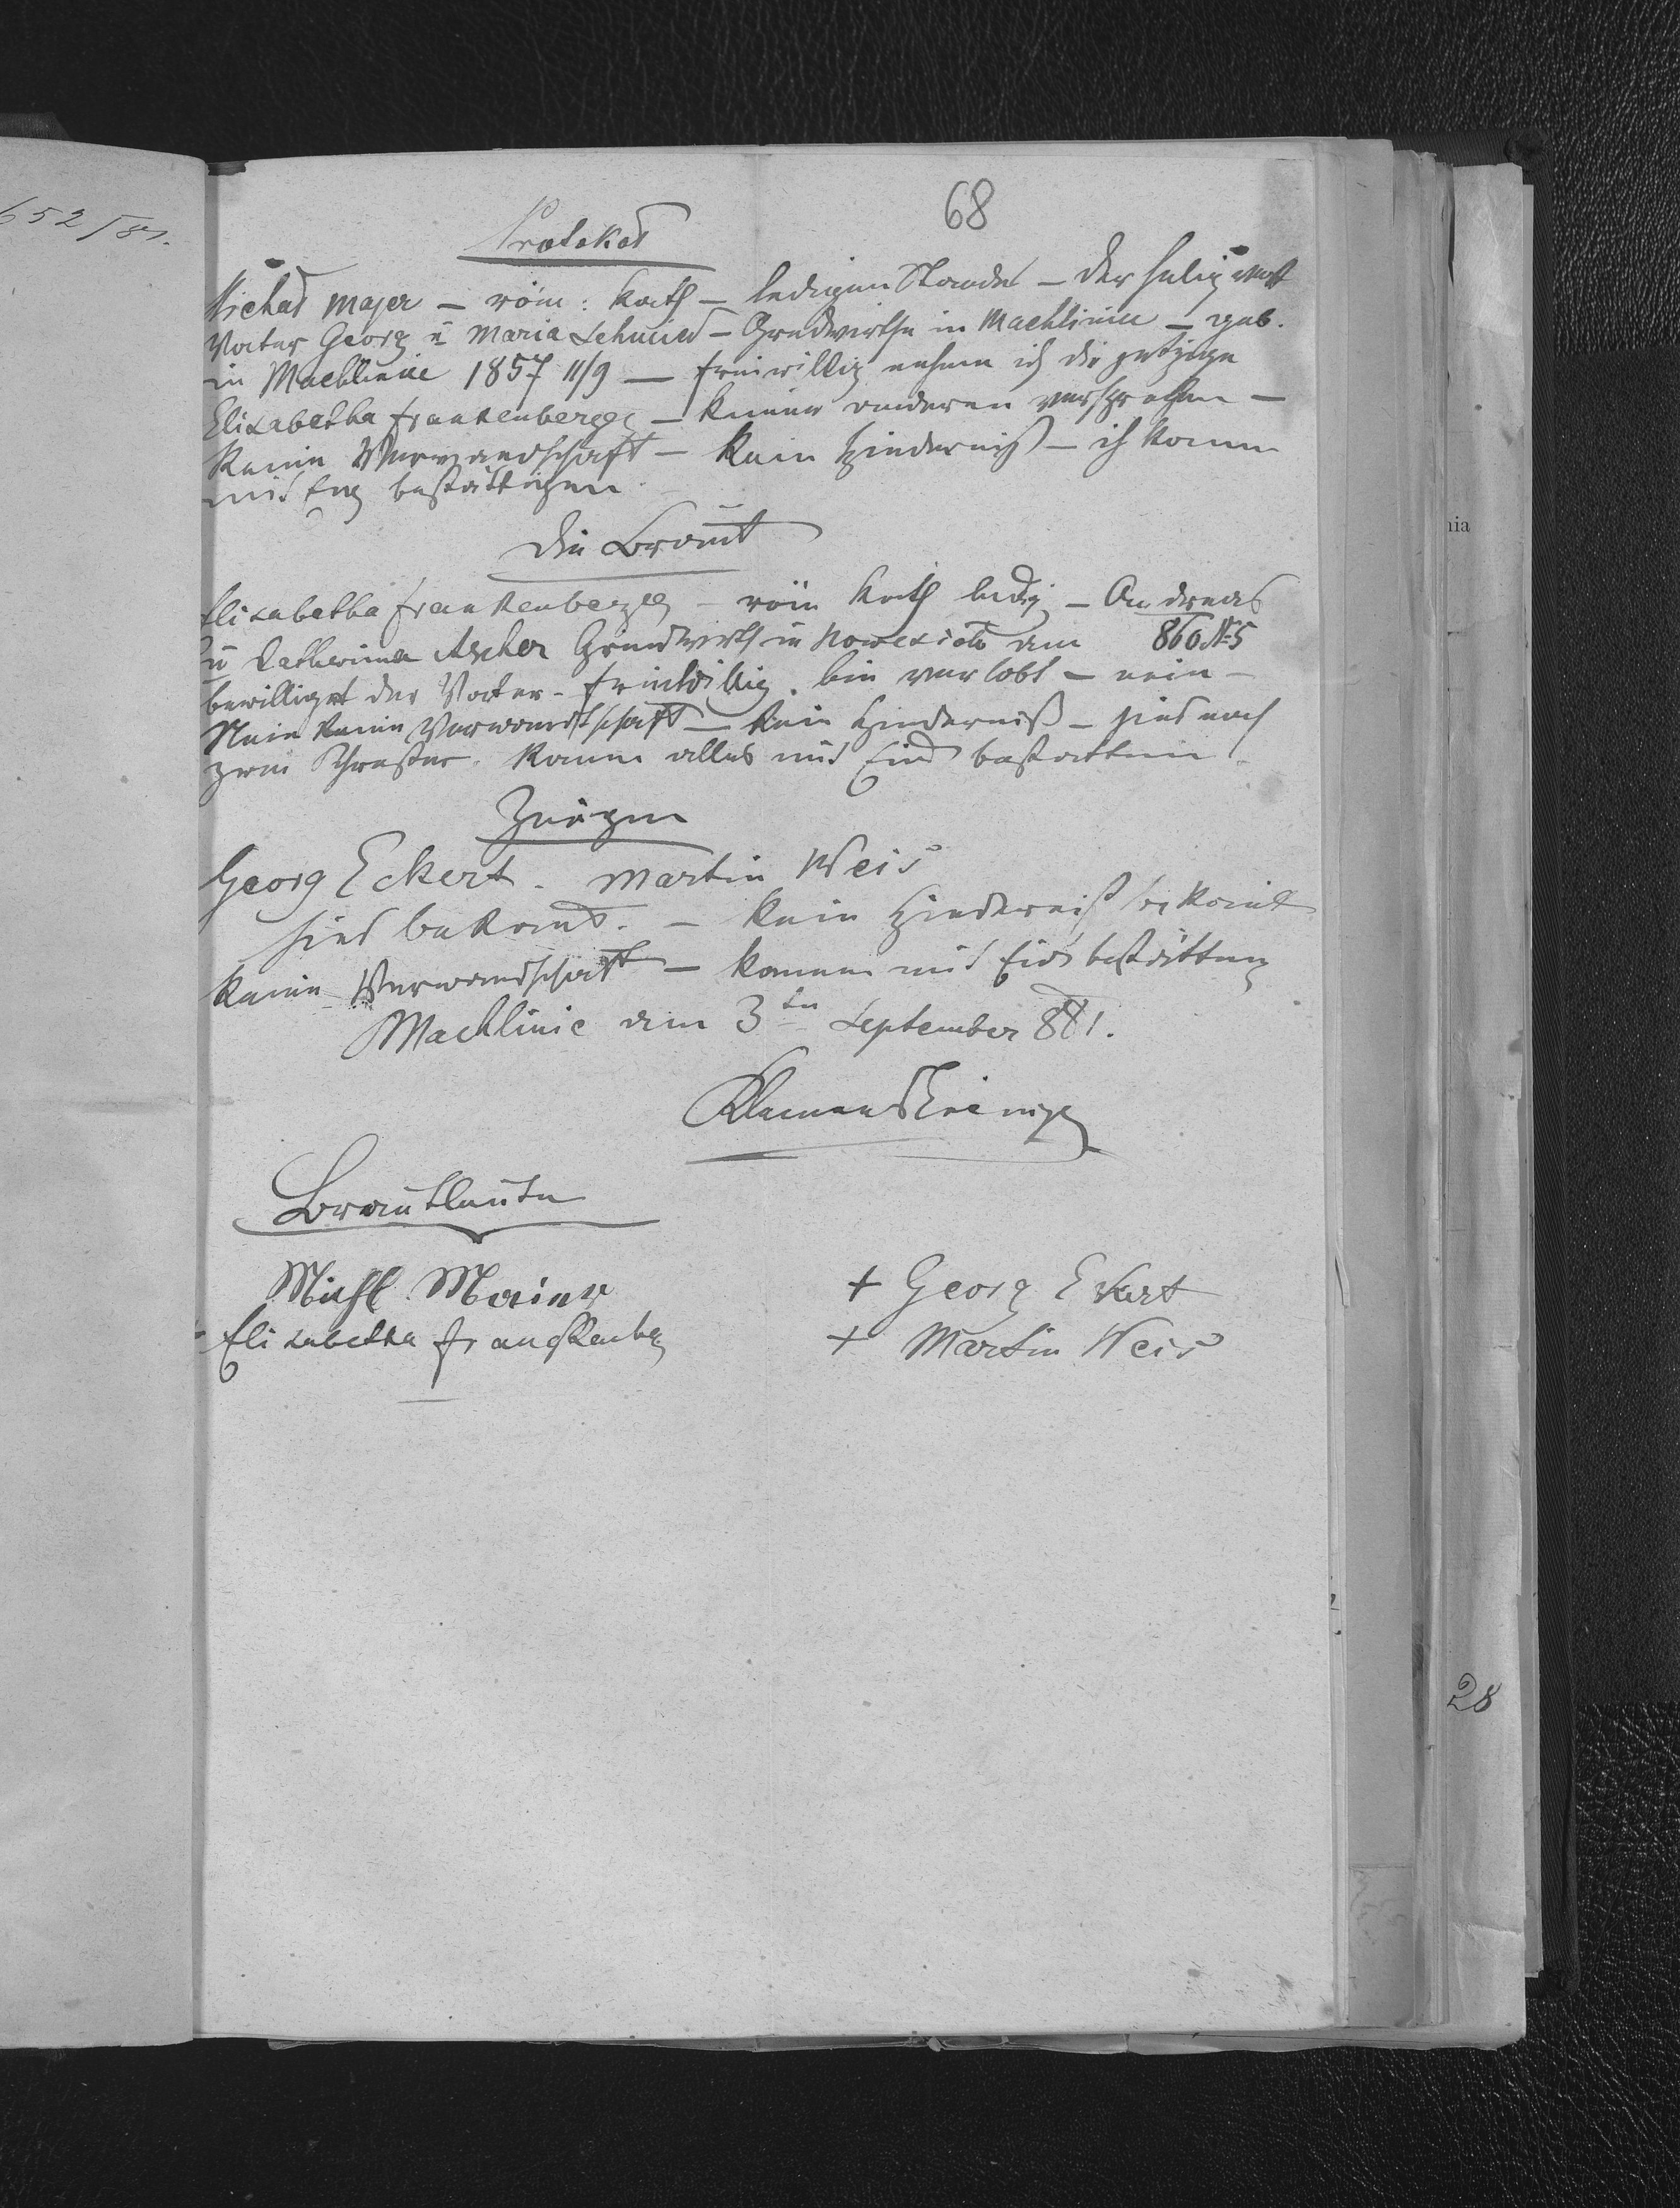 652/81.
68
Protokol
Michal Majer — röm: kath — ledigen Standes — der
Vater Georg ũ Maria Schmied — Grndwirthe in Machlinie — geb.
in Machlinie 1857 11/9 — freiwillig nehme ich die jetzige
Elisabetha Frankenberger — keiner anderen versprochen —
keine Verwandschaft — kein Hinderniß — ich kann
mit bestättigen
die Braut
Elisabetha Frankenberger — röm kath ledig — Andreas
ũ Catherina Ascher Grundwirth in am 860 № 5
bewilliget der Vater - freiwillig. bin verlobt — nein —
Nein keine Verwandtschaft — kein Hinderniß — sind noch
zwei Schwester. kann alles mit Eid bestatten
Zeügen
Georg Eckert. Martin Weis
sind bekant. — kein Hinderniß bekant
keine Verwandschaft — kannen mit Eid bestätten
Machlinie am 3ten September 881.
Brautleute
Michl Maier
+ Georg Ekert
Elisabetha Frangkenbe
+ Martin Weis
nia
28